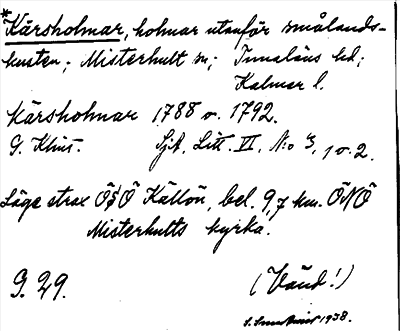 *Kärsholmar, holmar utanför smålands-
kusten; Misterhult sn; Tunaläns hd;
Kalmar l.
Kärsholmar 1788 o. 1792.
G. Klint. Sjk. Litt. VI, N:o 3, 1 o. 2.
Läge strax ÖSÖ Källön, bel. 9,7 km. ÖNÖ
Misterhults kyrka.
G. 29. (Vänd!)
1938.